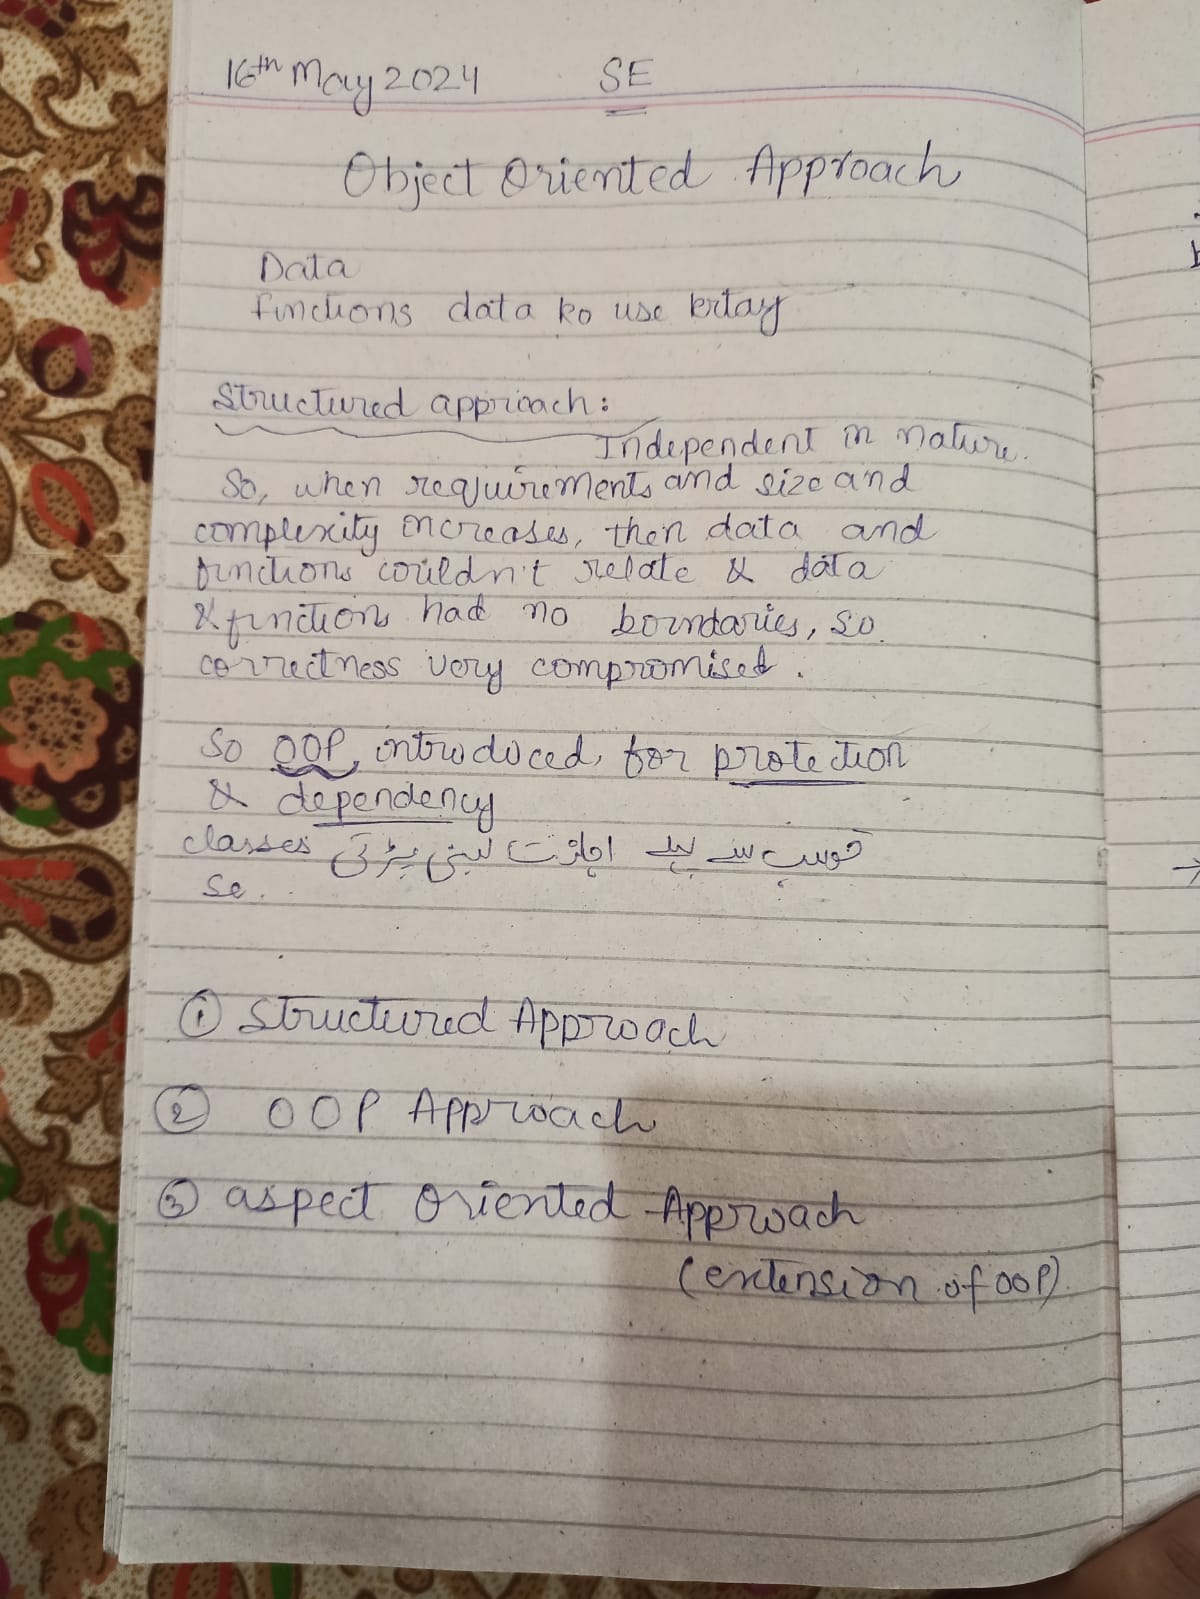 16th May 2024 SE
Object Oriented Approach
Data
functions data ko use krtay
Structured approach:
Independent in nature.
So, when requirements and size and
complexity increases, then data and
functions couldn't relate & data
& function had no boundaries, so
correctness very compromised.
So OOP, introduced, for protection
& dependency
classes سب سے پہلے اجازت لینی پڑتی
se.
① Structured Approach
② OOP Approach
③ aspect Oriented Approach
(extension of OOP).